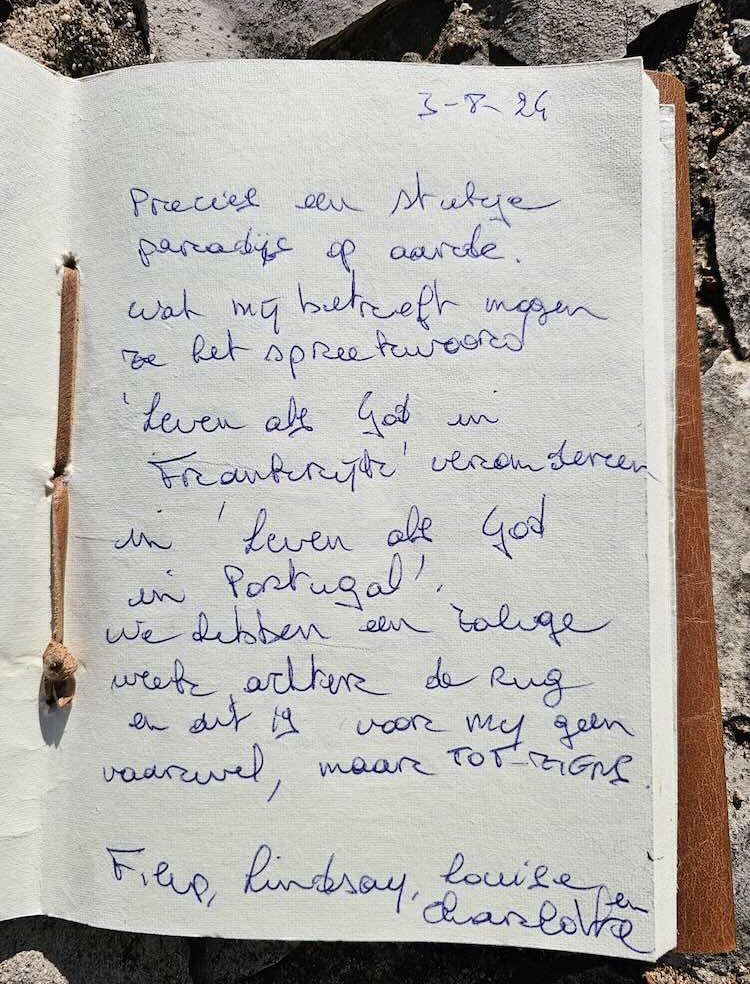 3-8-24
Precies een stukje
paradijs op aarde.
wat mij betreft mogen
ze het spreekwoord
'Leven als God in
Frankrijk' veranderen
in 'Leven als God
in Portugal'.
We hebben een zalige
week achter de rug
en dit is voor mij geen
vaarwel, maar TOT-ZIENS.
Filip, Lindsay, Louise en
Charlotte